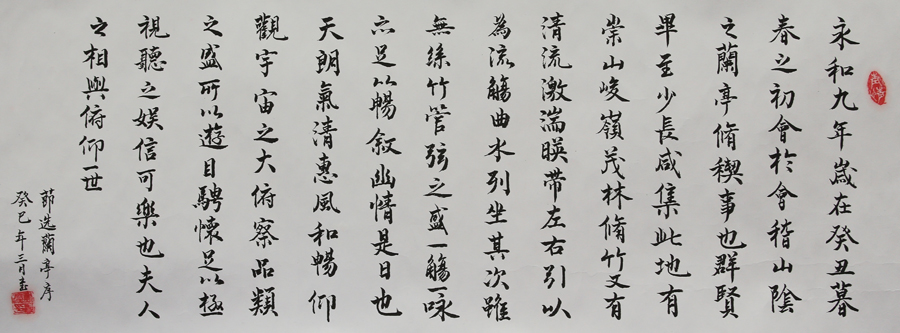 永和九年歲在癸丑暮
春之初會於會稽山陰
之蘭亭脩稧事也群賢
畢至少長咸集此地有
崇山峻嶺茂林脩竹又有
清流激湍暎帶左右引以
為流觴曲水列坐其次雖
無絲竹管弦之盛一觴一咏
亦足以暢叙幽情是日也
天朗氣清惠風和暢仰
觀宇宙之大俯察品類
之盛所以遊目騁懷足以極
視聽之娛信可樂也夫人
之相與俯仰一世
節选蘭亭序
癸巳年三月